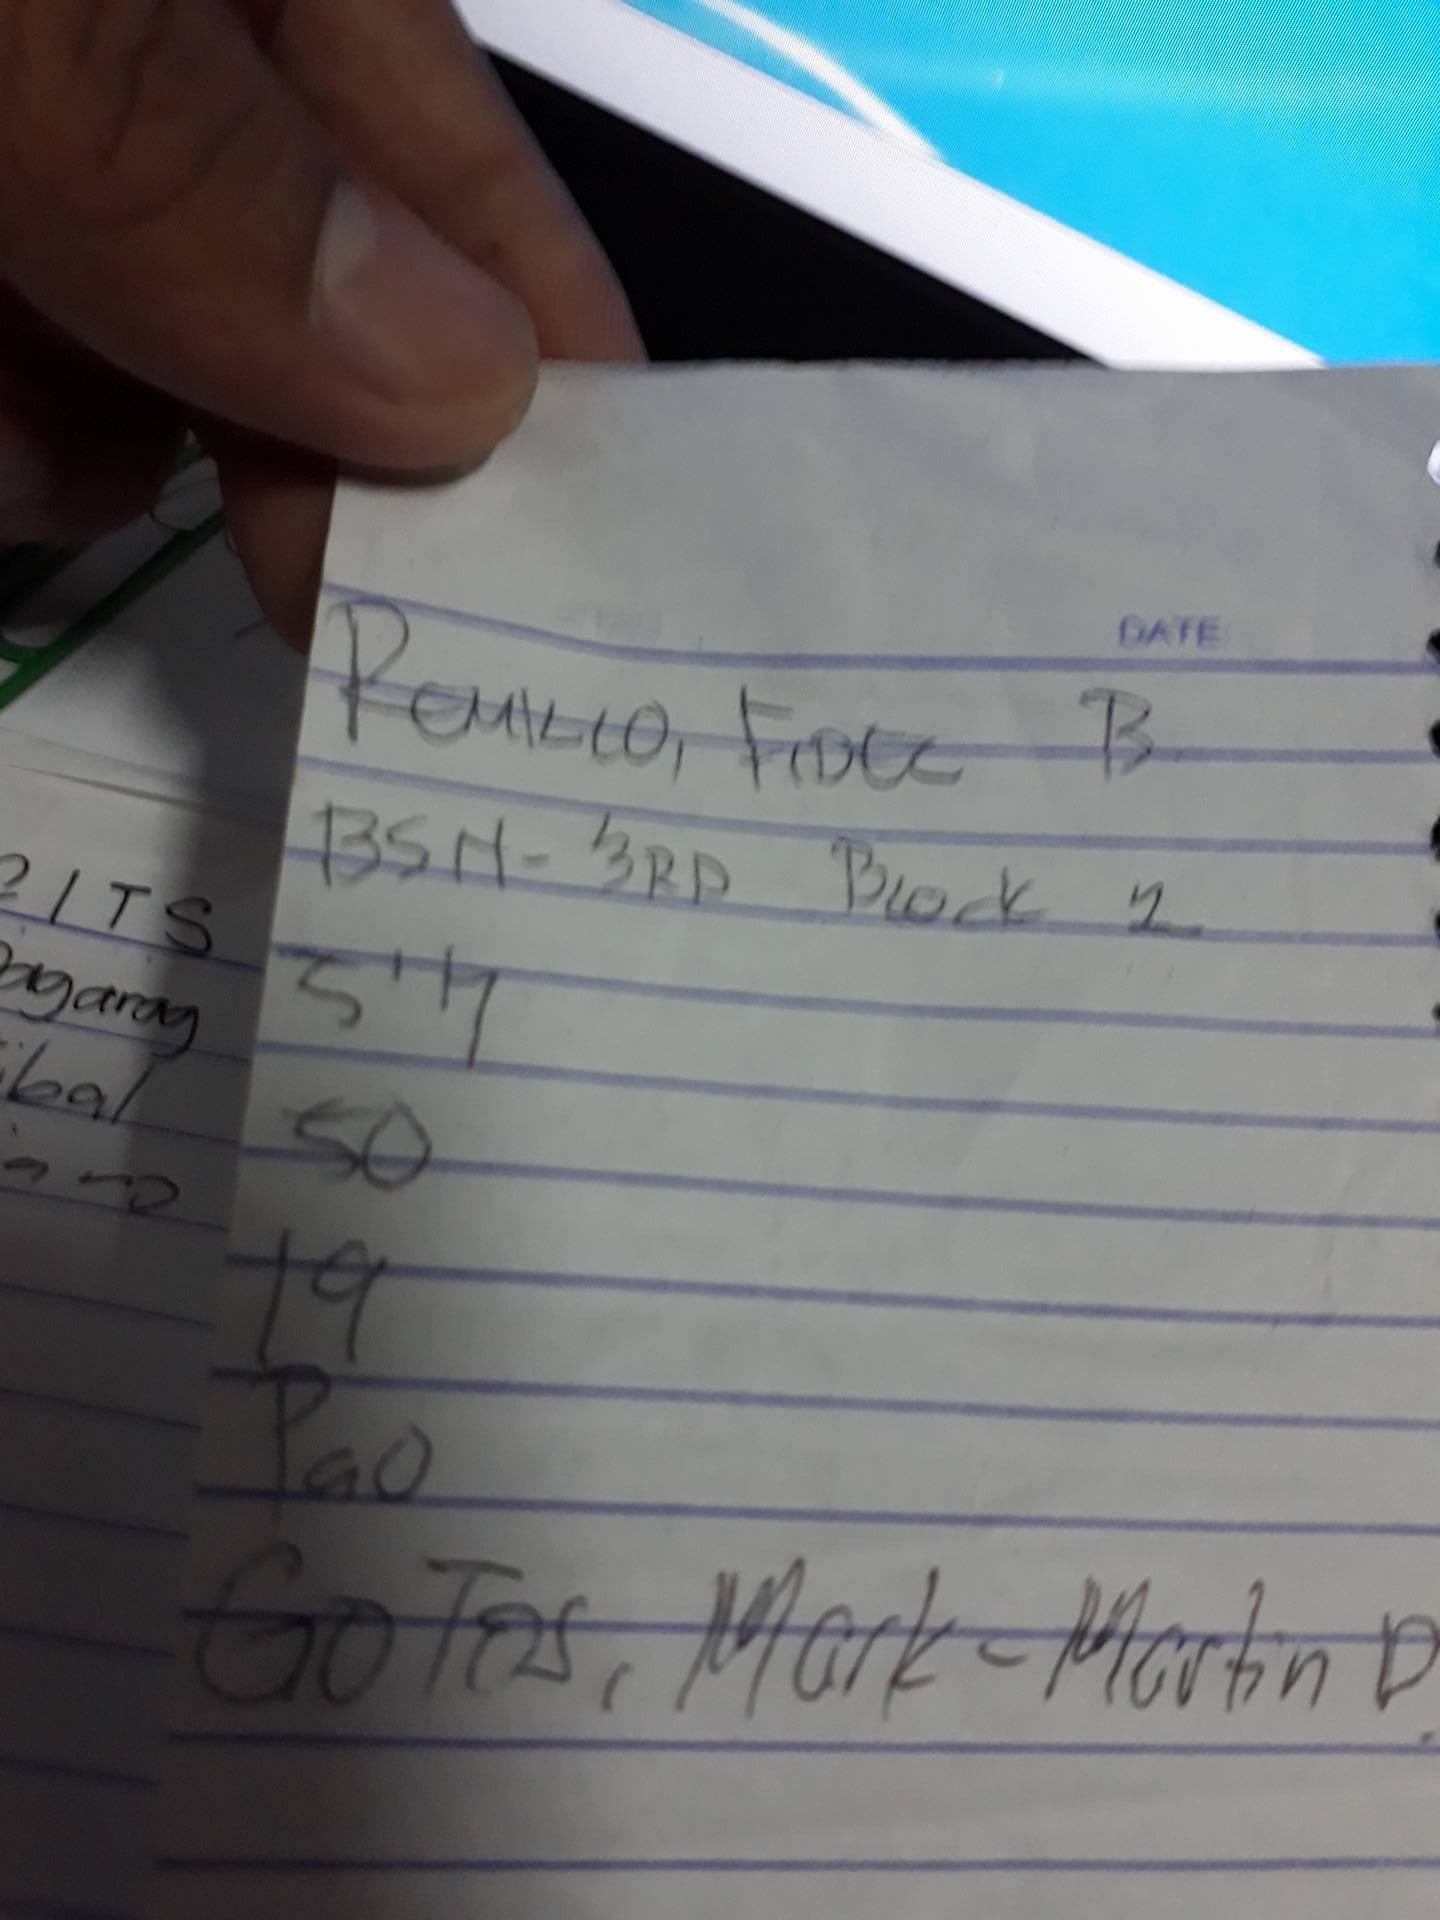 DATE
REMILLO, FIDEL B.
BSN - 3RD Block 2
5'4
50
19
Pao
GoTes, Mark-Martin D.
ITS
Dagarag
ibal